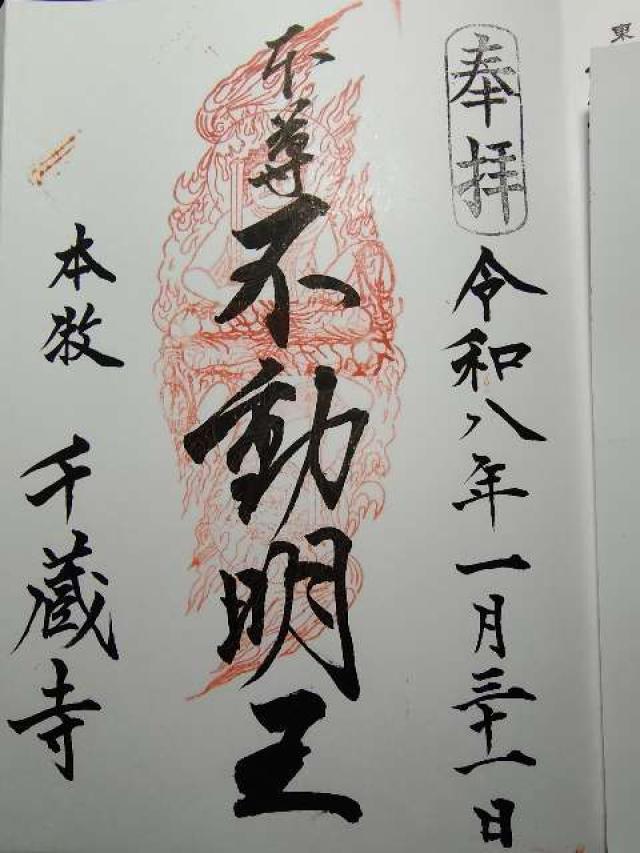 奉拝
令和八年一月三十一日
本尊不動明王
本牧 千蔵寺
東